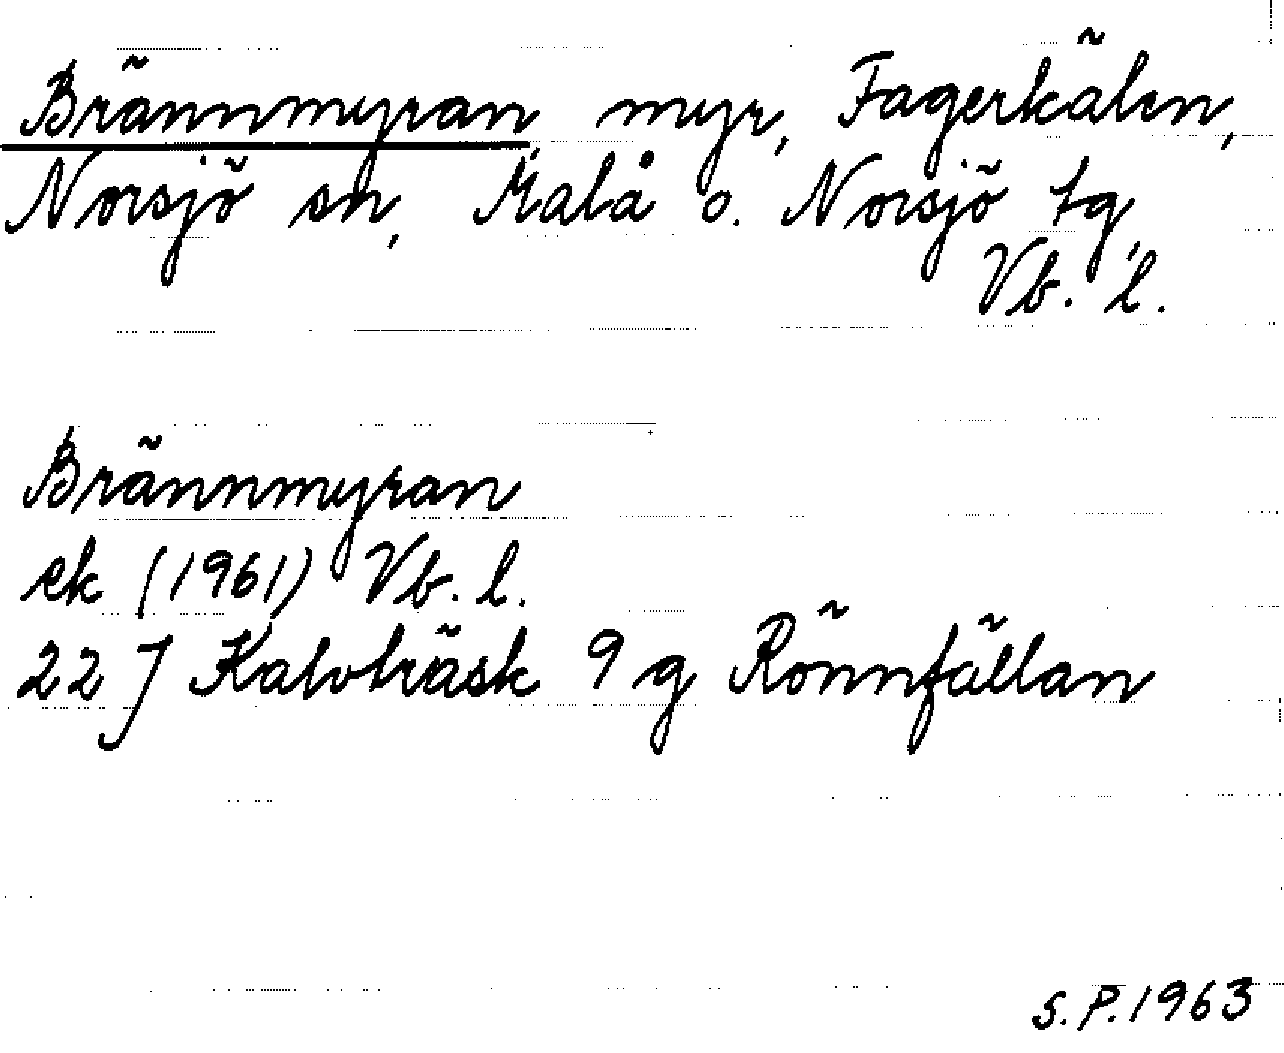 Brännmyran, myr, Fagerkälen,
Norsjö sn, Malå o. Norsjö tg,
Vb. l.
Brännmyran
ek (1961) Vb. l.
22 J Kalvträsk 9 g Rönnfällan
S. P. 1963